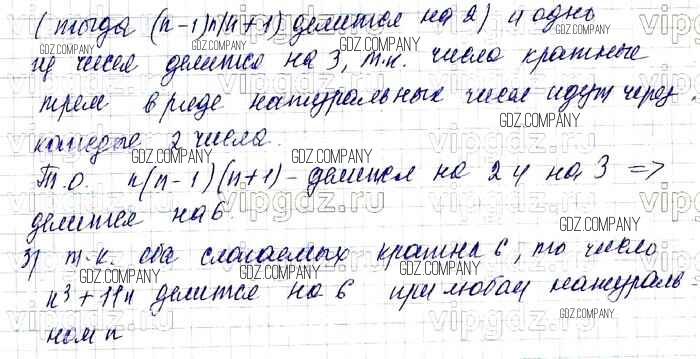 (тогда (n-1)n(n+1) делится на 2) и одно
из чисел делится на 3, т.к. число кратные
трем в ряде натуральных чисел идут через
каждые 2 числа.
Т.О. n(n-1)(n+1) - делится на 2 и на 3 =>
делится на 6
3) т.к. оба слагаемых кратны 6, то число
n³ + 11n делится на 6 при любом натураль
ном n
GDZ.COMPANY
vipgdz.ru